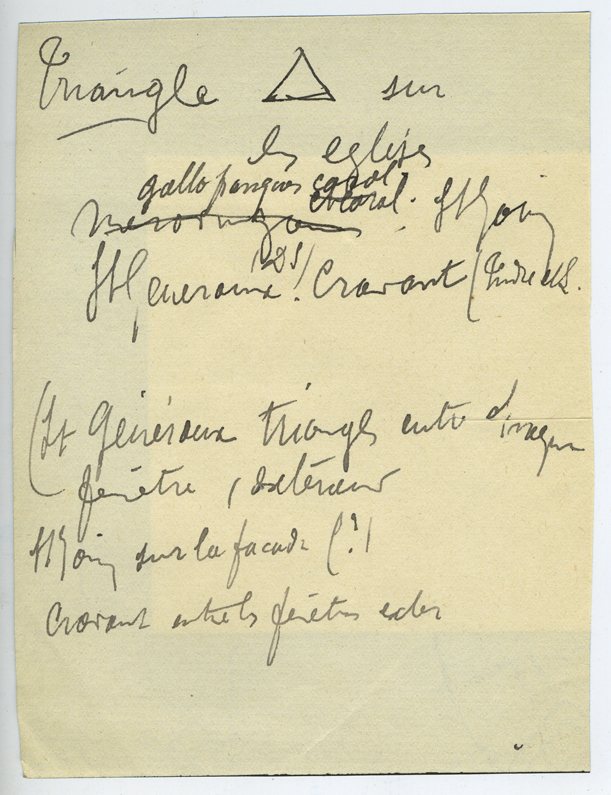 Triangle △ sur
les eglises
gallo franques carol
Merovingiennes carol. St Jouin
St Généroux (DS)! Cravant (Indre et L.
(St Généroux triangles entre
fenêtre, extérieur
St Jouin sur la facade (?)
Cravant entre les fenêtres exter